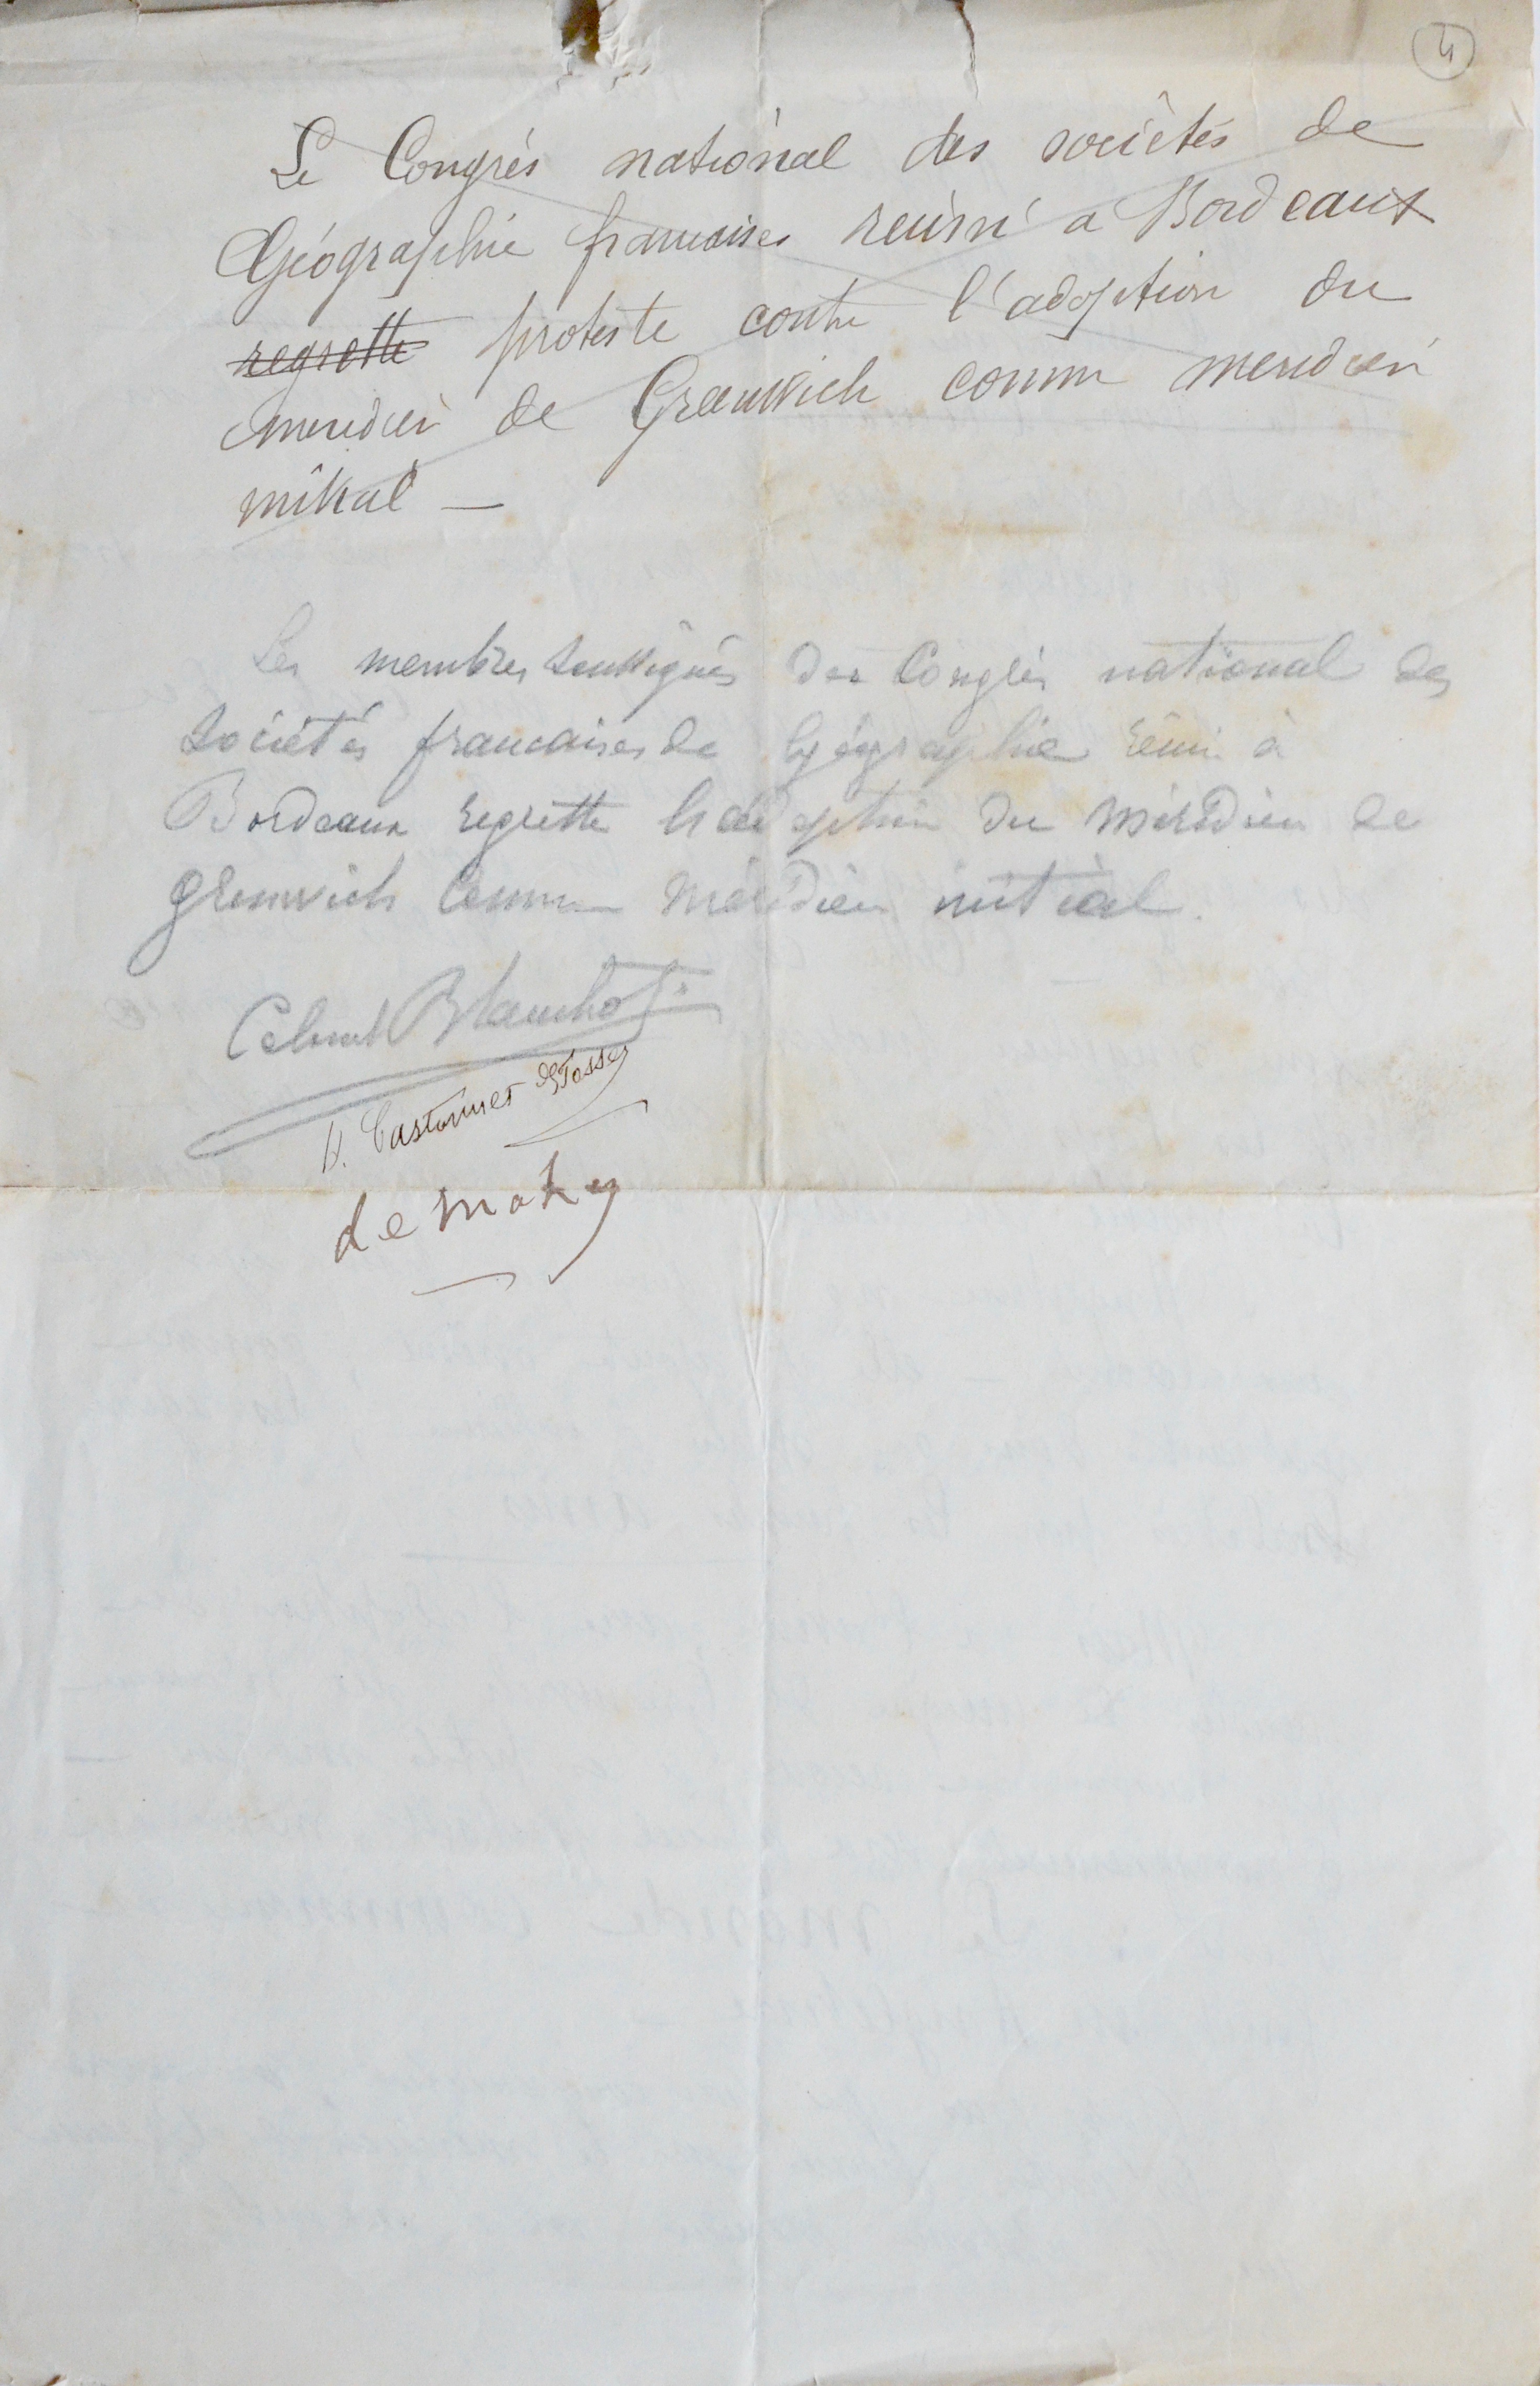 4
Le Congrés national des sociétés de
Géographie francaises réuni a Bordeaux
regrette proteste contre l'adoption du
meridien de Greenwich comme meridien
initial —
Les membres soussignés du Congrès national des
Sociétés francaises de Géographie réuni à
Bordeaux regrette l'adoption du méridien de
Greenwich comme méridien initial.
Colonel Blanchot
H. Castonnet des Fosses